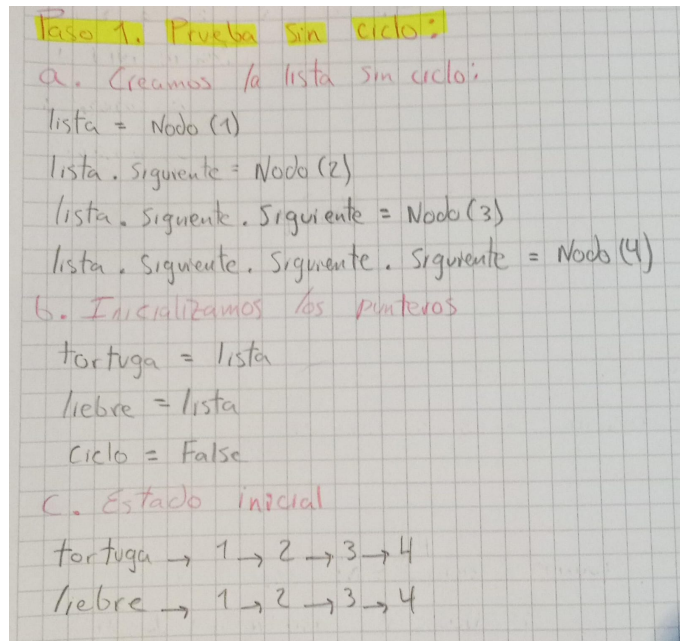 Paso 1. Prueba sin ciclo:
a. Creamos la lista sin ciclo:
lista = Nodo (1)
lista. Siguiente = Nodo (2)
lista. Siguente. Siguiente = Nodo (3)
lista. Siguiente. Siguiente. Siguiente = Nodo (4)
b. Inicializamos los punteros
tortuga = lista
liebre = lista
Ciclo = False
C. Estado inicial
tortuga → 1 → 2 → 3 → 4
liebre → 1 → 2 → 3 → 4